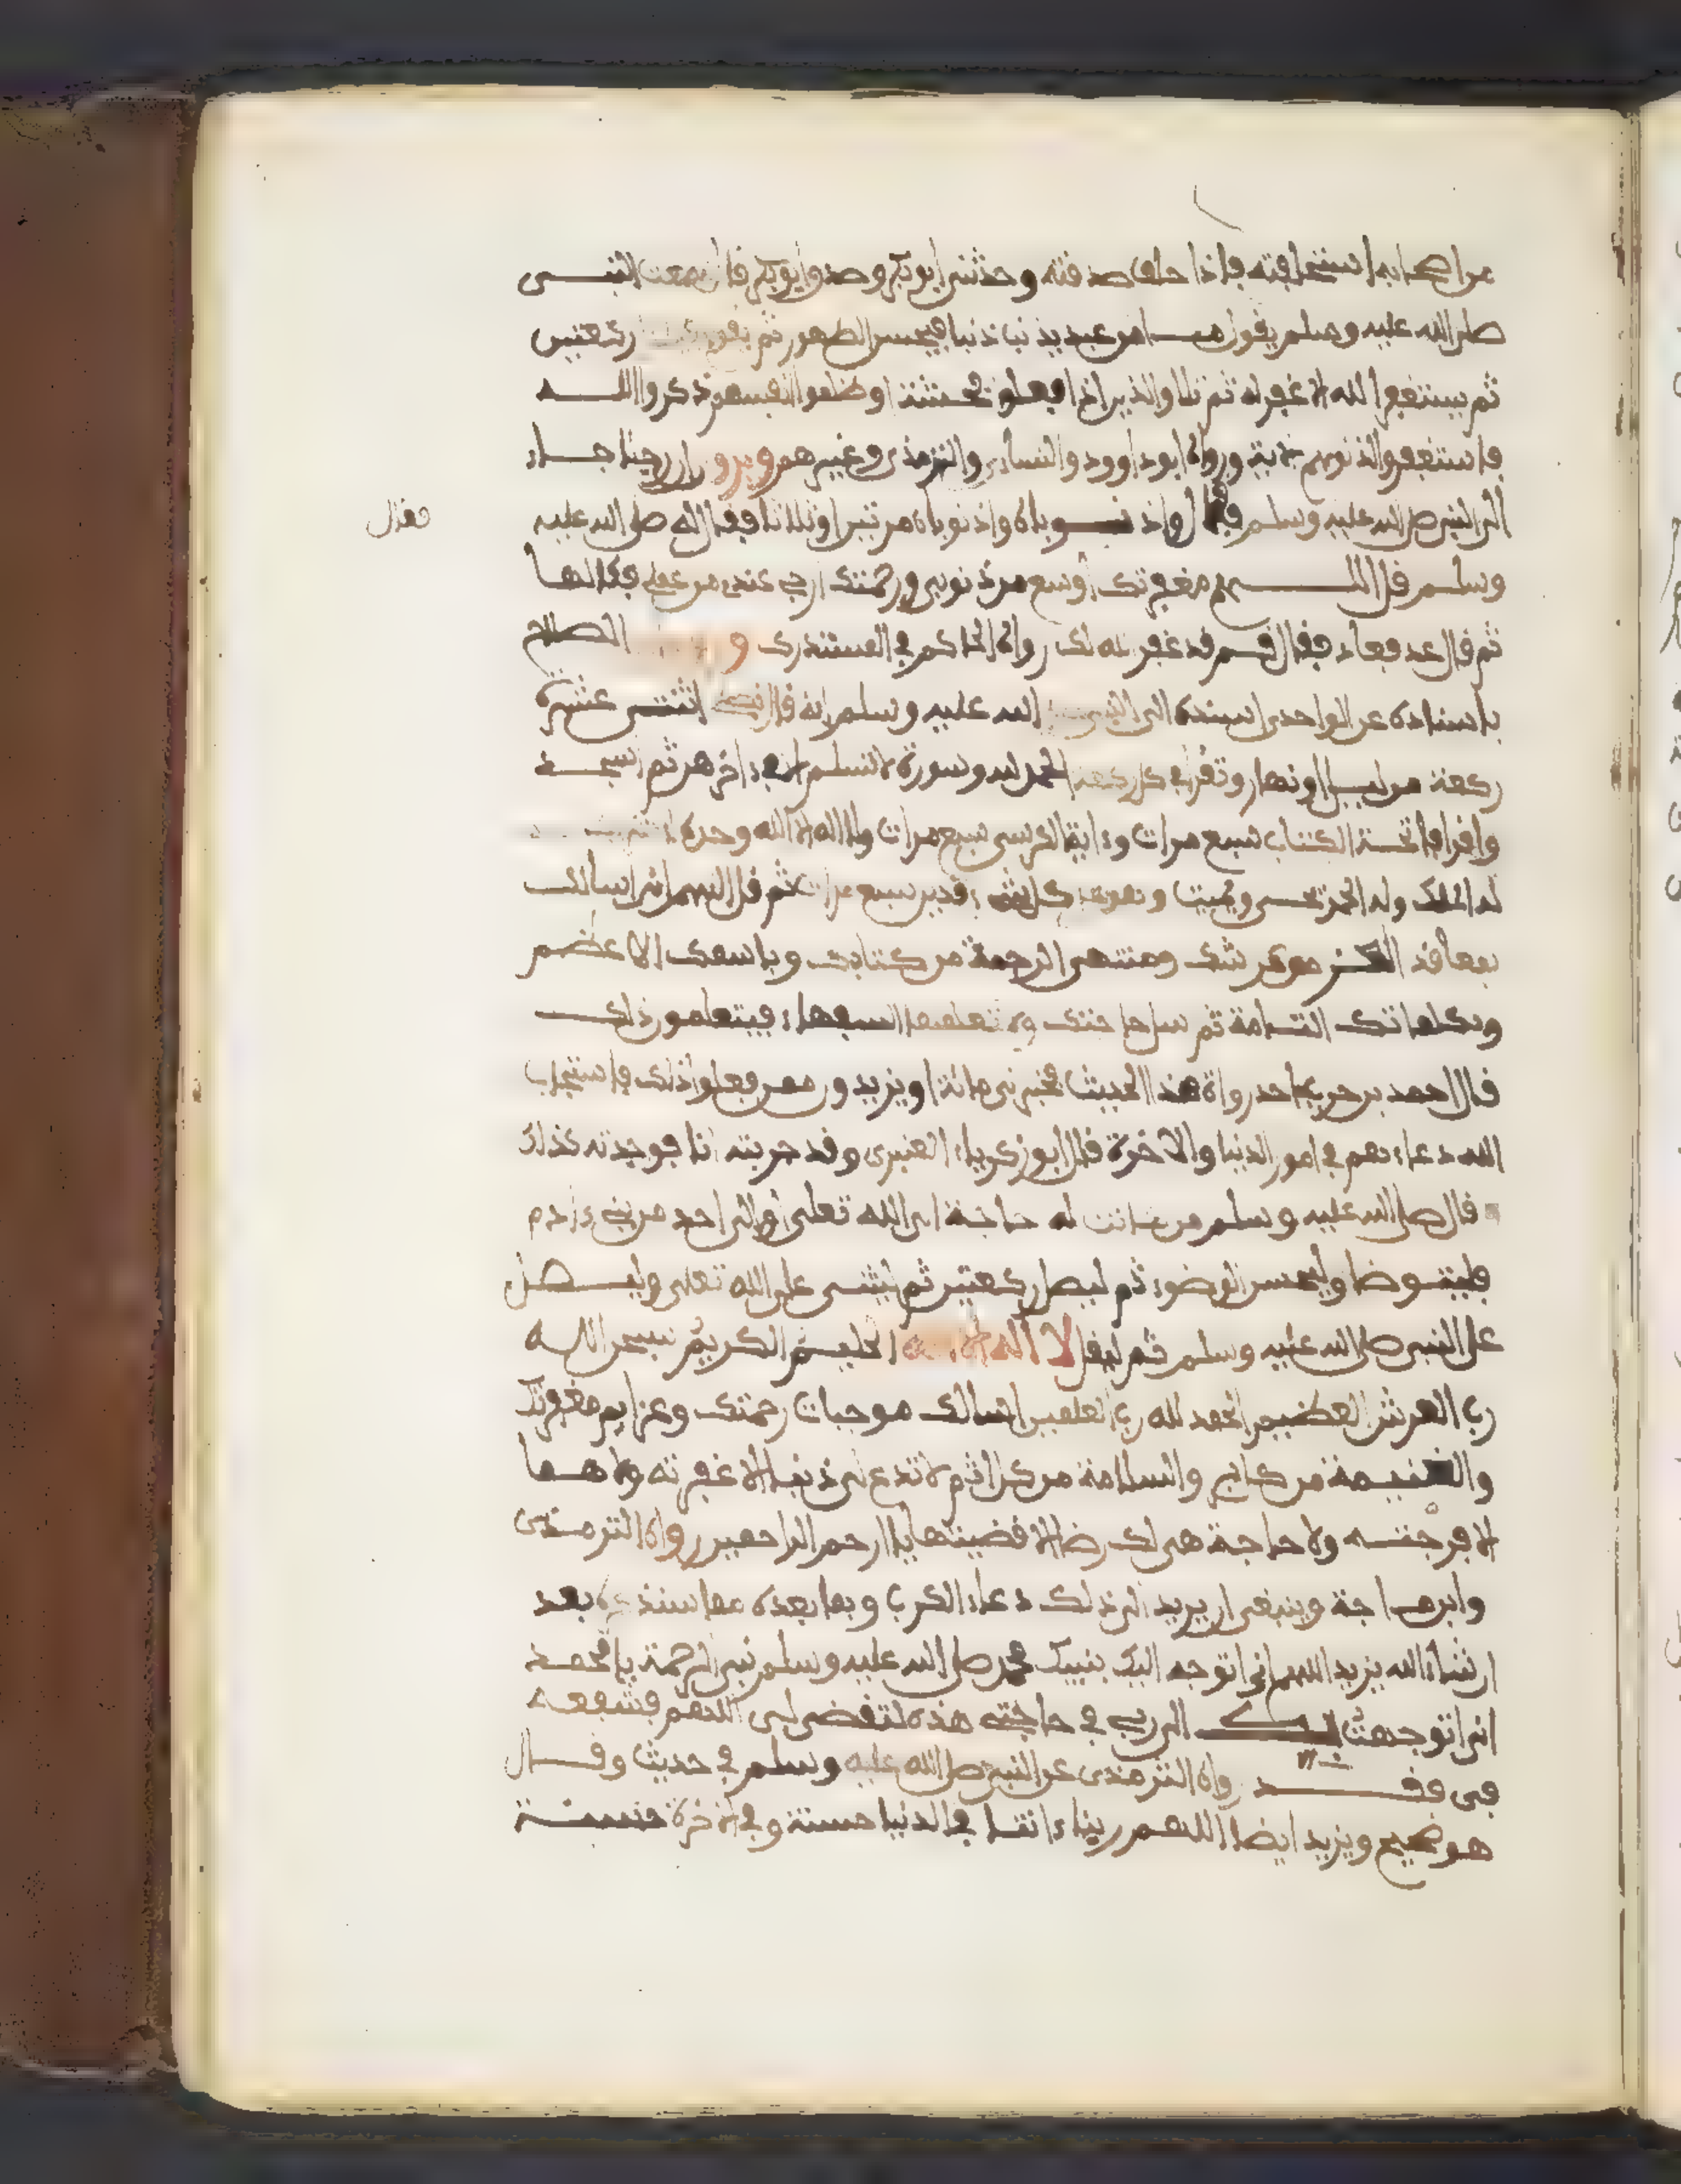 من اصحابه استحلفته فاذا حلف صدقته وحدثني ابو بكر وصدق ابو بكر قال سمعت النبي
صلى الله عليه وسلم يقول ما من عبد يذنب ذنبا فيحسن الطهور ثم يقوم ركعتين
ثم يستغفر الله الا غفر له ثم تلا والذين اذا فعلوا فحشة او ظلموا انفسهم ذكروا الله
فاستغفروا لذنوبهم الاية ورواه ابو داوود والنساءي والترمذي وغيرهم ويروى ان رجلا جاء
الى النبي صلى الله عليه وسلم فقال واذنوباه واذنوباه مرتين او ثلاثا فقال له صلى الله عليه
فقال
وسلم قل اللهم مغفرتك اوسع من ذنوبي ورحمتك ارجى عندي من عملي فقالها
ثم قال عد فعاد فقال قم قد غفر الله لك رواه الحاكم في المستدرك و الصلاح
باسناده عن الواحدي اسنده الى النبي الله عليه وسلم انه قال اثنتي عشرة
ركعة من ليل او نهار وتقرا في كل ركعة الحمد لله وسورة لا تسلم الا في ءاخرهن ثم اسجد
واقرا فاتحة الكتاب سبع مرات وءاية الكرسي سبع مرات ولا اله الا الله وحده لا شريك
له الملك وله الحمد يحيي ويميت وهو على كل شيء قدير سبع مرات ثم قل اللهم اني اسالك
بمعاقد العز من عرشك ومنتهى الرحمة من كتابك وباسمك الاعظم
وبكلماتك التامة ثم سل حاجتك ولا تعلمها السفهاء فيتعلمون ذلك
قال احمد بن حرب احد رواة هذا الحديث مائة او يزيدون ممن فعلوا ذلك فاستجاب
الله دعاءهم في امور الدنيا والاخرة قال ابو زكرياء العنبري وقد جربته انا فوجدته كذلك
قال صلى الله عليه وسلم من كانت له حاجة الى الله تعلى او الى احد من بني ءادم
فليتوضا وليحسن الوضوء ثم ليصل ركعتين ثم ليثني على الله تعلى وليصل
على النبي صلى الله عليه وسلم ثم ليقل لا اله الا الله الحليم الكريم سبحن الله
رب العرش العظيم الحمد لله رب العلمين اسالك موجبات رحمتك وعزايم مغفرتك
والغنيمة من كل بر والسلامة من كل اثم لا تدع لي ذنبا الا غفرته ولا هما
الا فرجته ولا حاجة هي لك رضا الا قضيتها يا ارحم الراحمين رواه الترمذي
وابن ماجة وينبغي ان يزيد الى ذلك دعاء الكرب وما بعده مما سنذكره بعد
ان شاء الله يزيد اللهم اني اتوجه اليك بنبيك محمد صلى الله عليه وسلم نبي الرحمة يا محمد
اني اتوجهت بك الى ربي في حاجتي هذه لتقضى لي اللهم فشفعه
في فقد رواه الترمذي عن النبي صلى الله عليه وسلم في حديث وقال
هو صحيح ويزيد ايضا اللهم ربنا ءاتنا في الدنيا حسنة وفي الاخرة حسنة